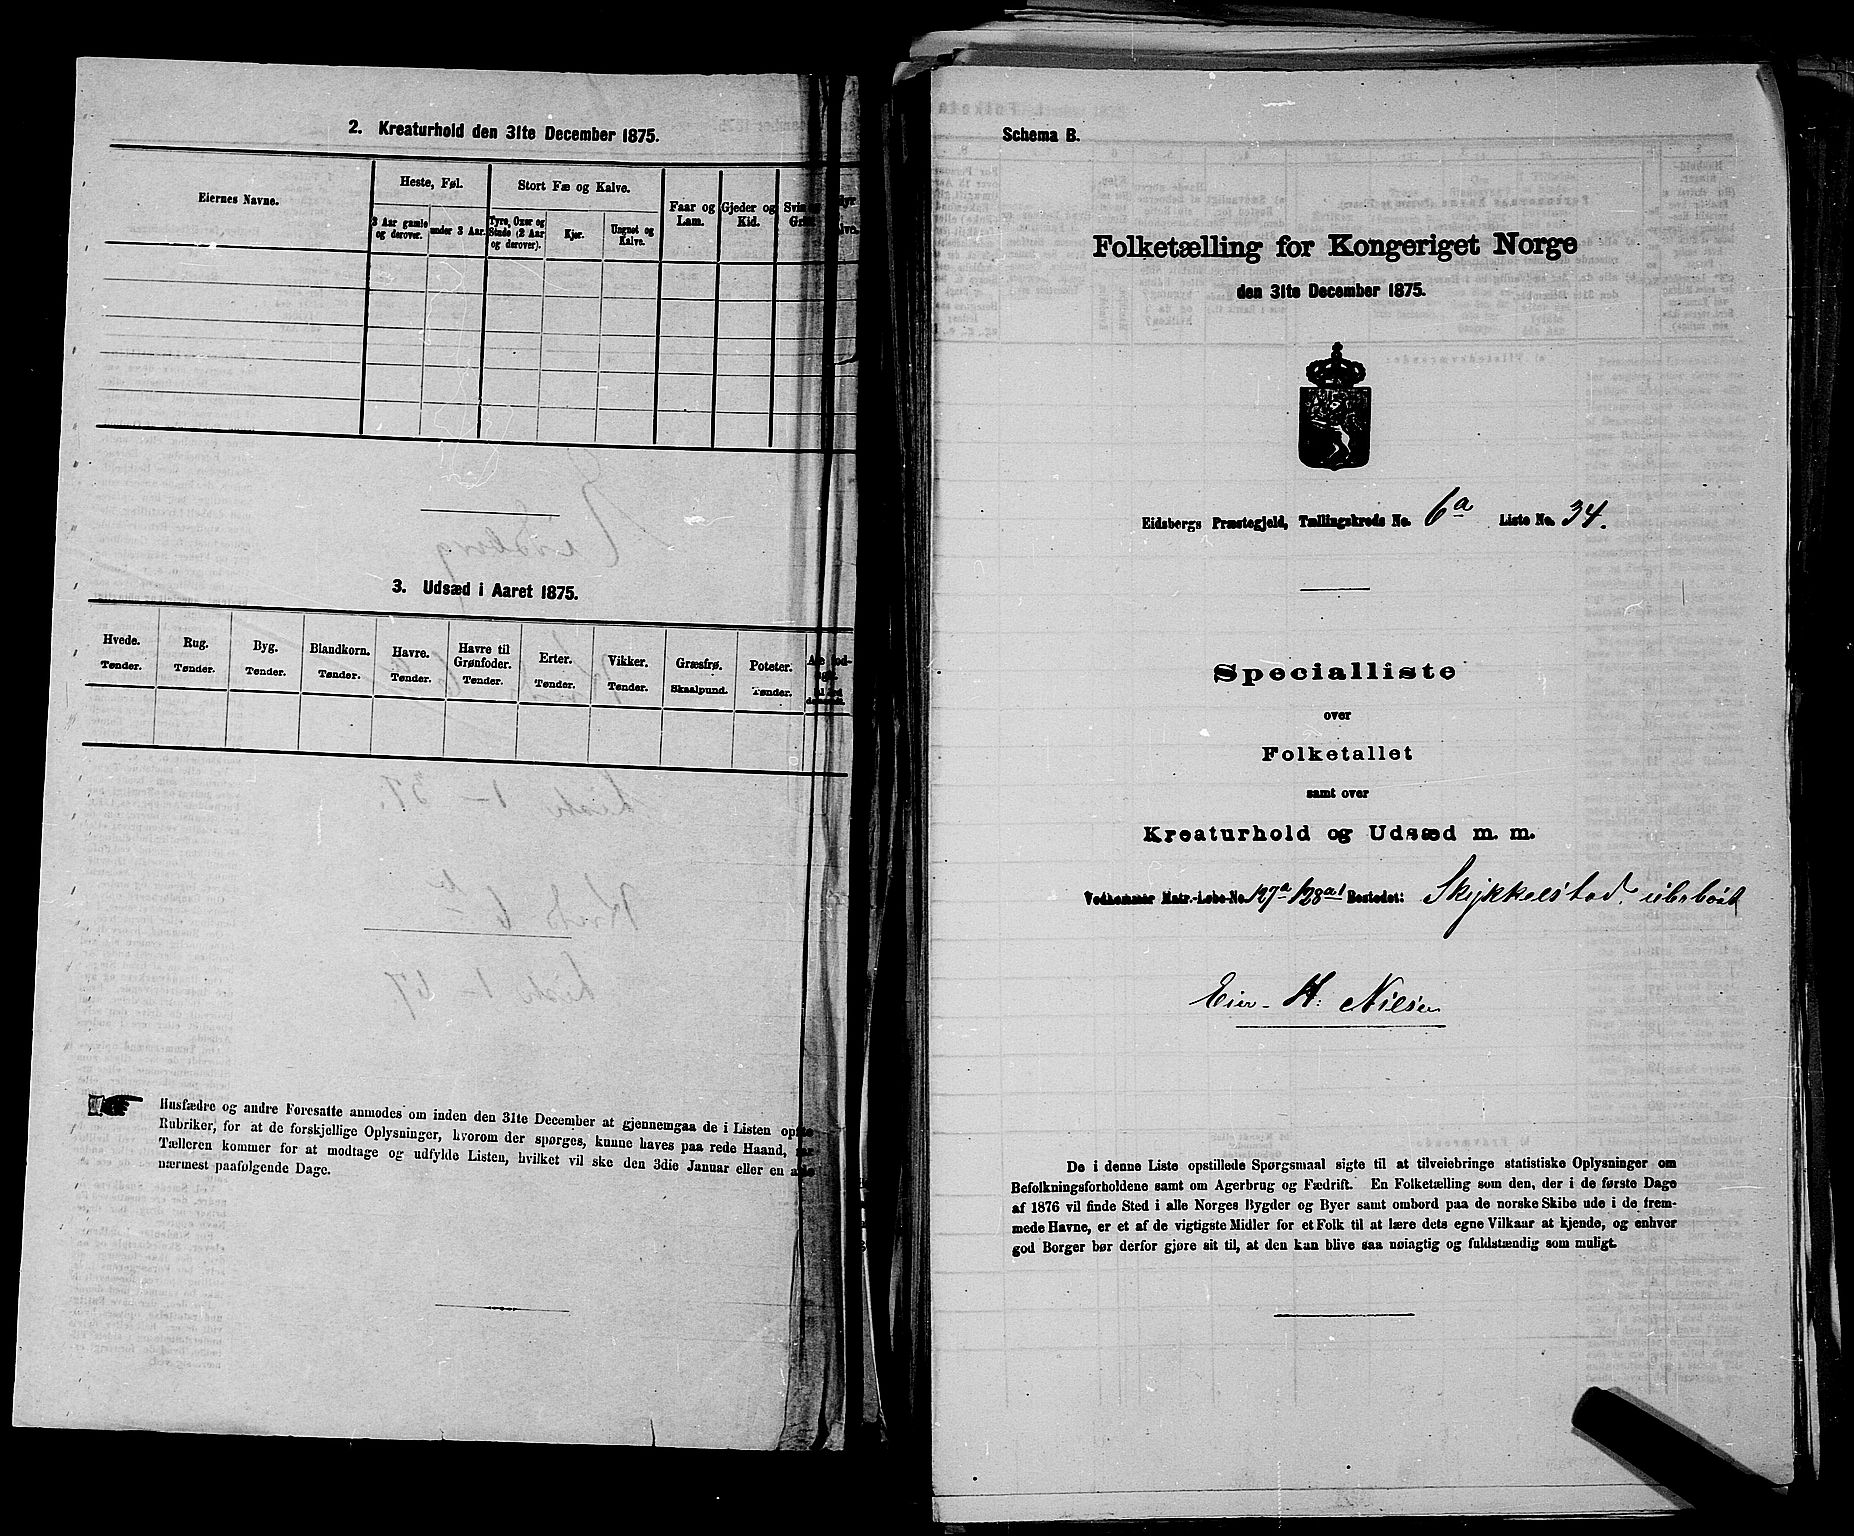 2. Kreaturhold den 31te December 1875.
Eiernes Navne.
Heste, Føl.
Stort Fæ og Kalve.
Faar og Lam.
Gjeder og Kid.
3 Aar gamle og derover.
under 3 Aar.
Tyre, Oxer og Stude (2 Aar og derover).
Kjør.
Ungnøt og Kalve.
3. Udsæd i Aaret 1875.
Hvede. Rug. Byg. Blandkorn. Havre. Havre til Grønfoder. Erter. Vikker. Græsfrø. Poteter.
Tønder. Tønder. Tønder. Tønder. Tønder. Tønder. Tønder. Tønder. Skaalpund. Tønder.
Husfædre og andre Foresatte anmodes om inden den 31te December at gjennemgaa de i Listen
Rubriker, for at de forskjellige Oplysninger, hvorom der spørges, kunne haves paa rede Haand,
Tælleren kommer for at modtage og udfylde Listen, hvilket vil ske den 3die Januar eller en
nærmest paafølgende Dage.
Schema B.
Folketælling for Kongeriget Norge
den 31te December 1875.
Eidsbergs Præstegjeld, Tællingskreds No. 6a Liste No. 34.
Specialliste
over
Folketallet
samt over
Kreaturhold og Udsæd m. m.
Vedkommer Matr.-Løbe-No. 127a 128a1 Bostedet: Skjykkelstad. ubeboet
Eier - H. Nilsen
De i denne Liste opstillede Spørgsmaal sigte til at tilveiebringe statistiske Oplysninger om
Befolkningsforholdene samt om Agerbrug og Fædrift. En Folketælling som den, der i de første Dage
af 1876 vil finde Sted i alle Norges Bygder og Byer samt ombord paa de norske Skibe ude i de frem-
mede Havne, er et af de vigtigste Midler for et Folk til at lære dets egne Vilkaar at kjende, og enhver
god Borger bør derfor gjøre sit til, at den kan blive saa nøiagtig og fuldstændig som muligt.